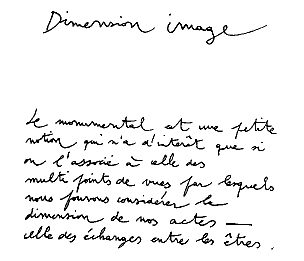 Dimension image
Le monumental est une petite
notion qui n'a d'intérêt que si
on l'associe à celle des
multi points de vues par lesquels
nous pouvons considérer la
dimension de nos actes —
celle des échanges entre les êtres.